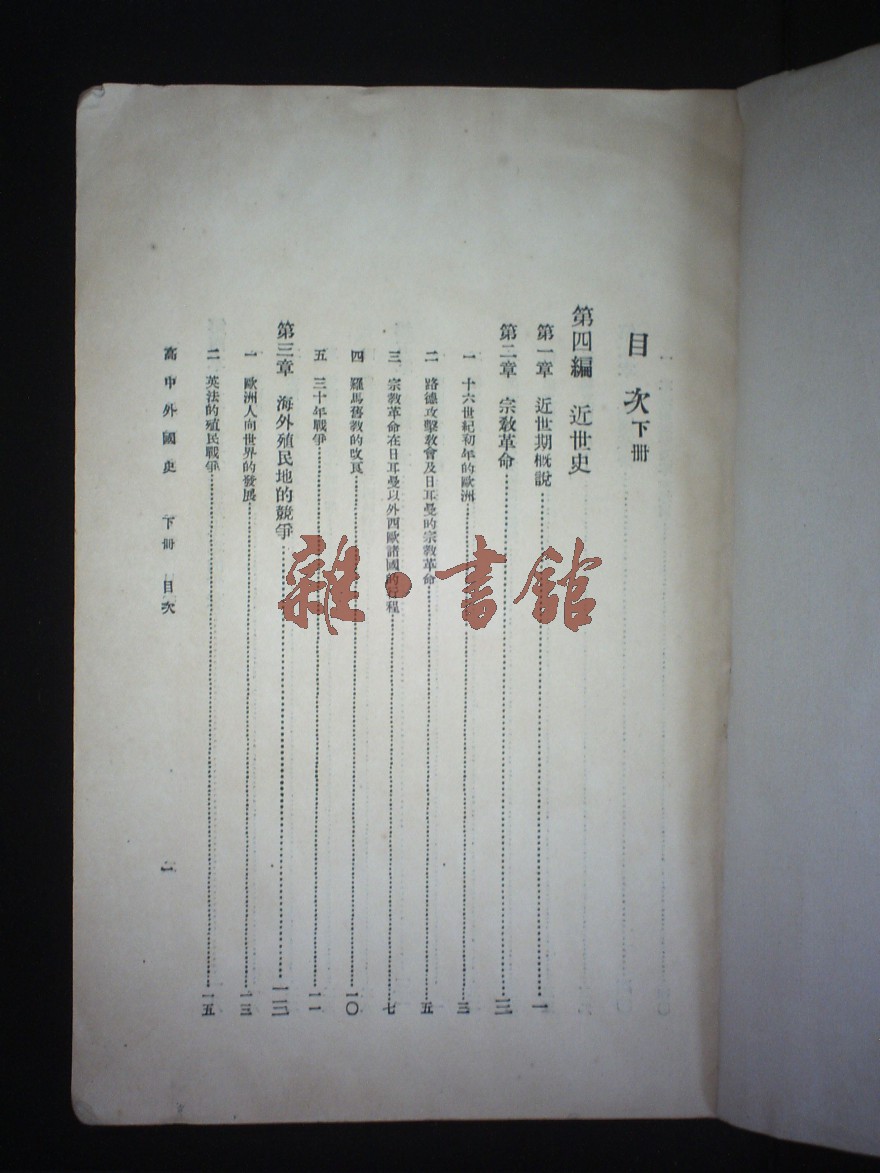 目次下冊
第四編 近世史
第一章 近世期概說……一
第二章 宗教革命……三
一 十六世紀初年的歐洲……三
二 路德攻擊教會及日耳曼的宗教革命……五
三 宗教革命在日耳曼以外西歐諸國的 程……七
四 羅馬舊教的改良……一〇
五 三十年戰爭……一一
第三章 海外殖民地的競爭……一三
一 歐洲人向世界的發展……一三
二 英法的殖民戰爭……一五
高中外國史 下冊 目次
雜·書館